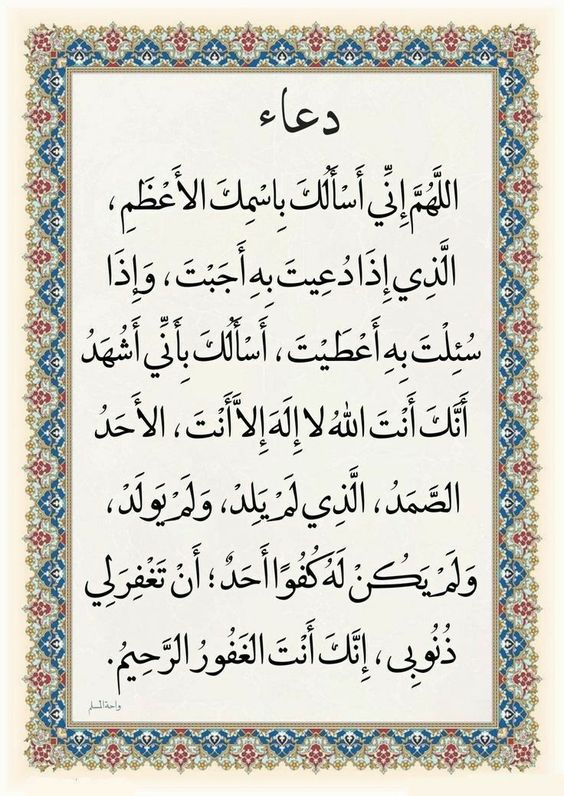 دعاء
اللَّهُمَّ إِنِّي أَسْأَلُكَ بِاسْمِكَ الأَعْظَمِ ،
الَّذِي إِذَا دُعِيتَ بِهِ أَجَبْتَ ، وَإِذَا
سُئِلْتَ بِهِ أَعْطَيْتَ ، أَسْأَلُكَ بِأَنِّي أَشْهَدُ
أَنَّكَ أَنْتَ اللهُ لا إِلَهَ إِلاَّ أَنْتَ ، الأَحَدُ
الصَّمَدُ ، الَّذِي لَمْ يَلِدْ ، وَلَمْ يُولَدْ ،
وَلَمْ يَكُنْ لَهُ كُفُوًا أَحَدٌ ؛ أَنْ تَغْفِرَ لِي
ذُنُوبِى ، إِنَّكَ أَنْتَ الغَفُورُ الرَّحِيمُ .
واحة المسلم